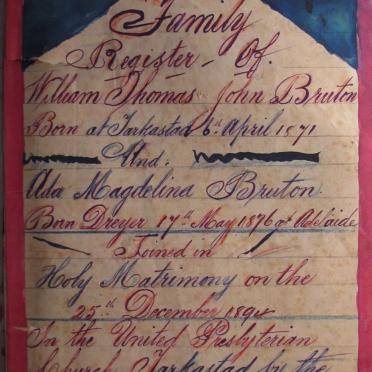 Family
Register Of.
William Thomas John Bruton
Born at Tarkastad 6th April 1871
And.
Ada Magdelina Bruton.
Born Dreyer 17th May 1876 at Adelaide
Joined in
Holy Matrimony on the
25th December 1894
In the United Presbyterian
Church Tarkastad by the